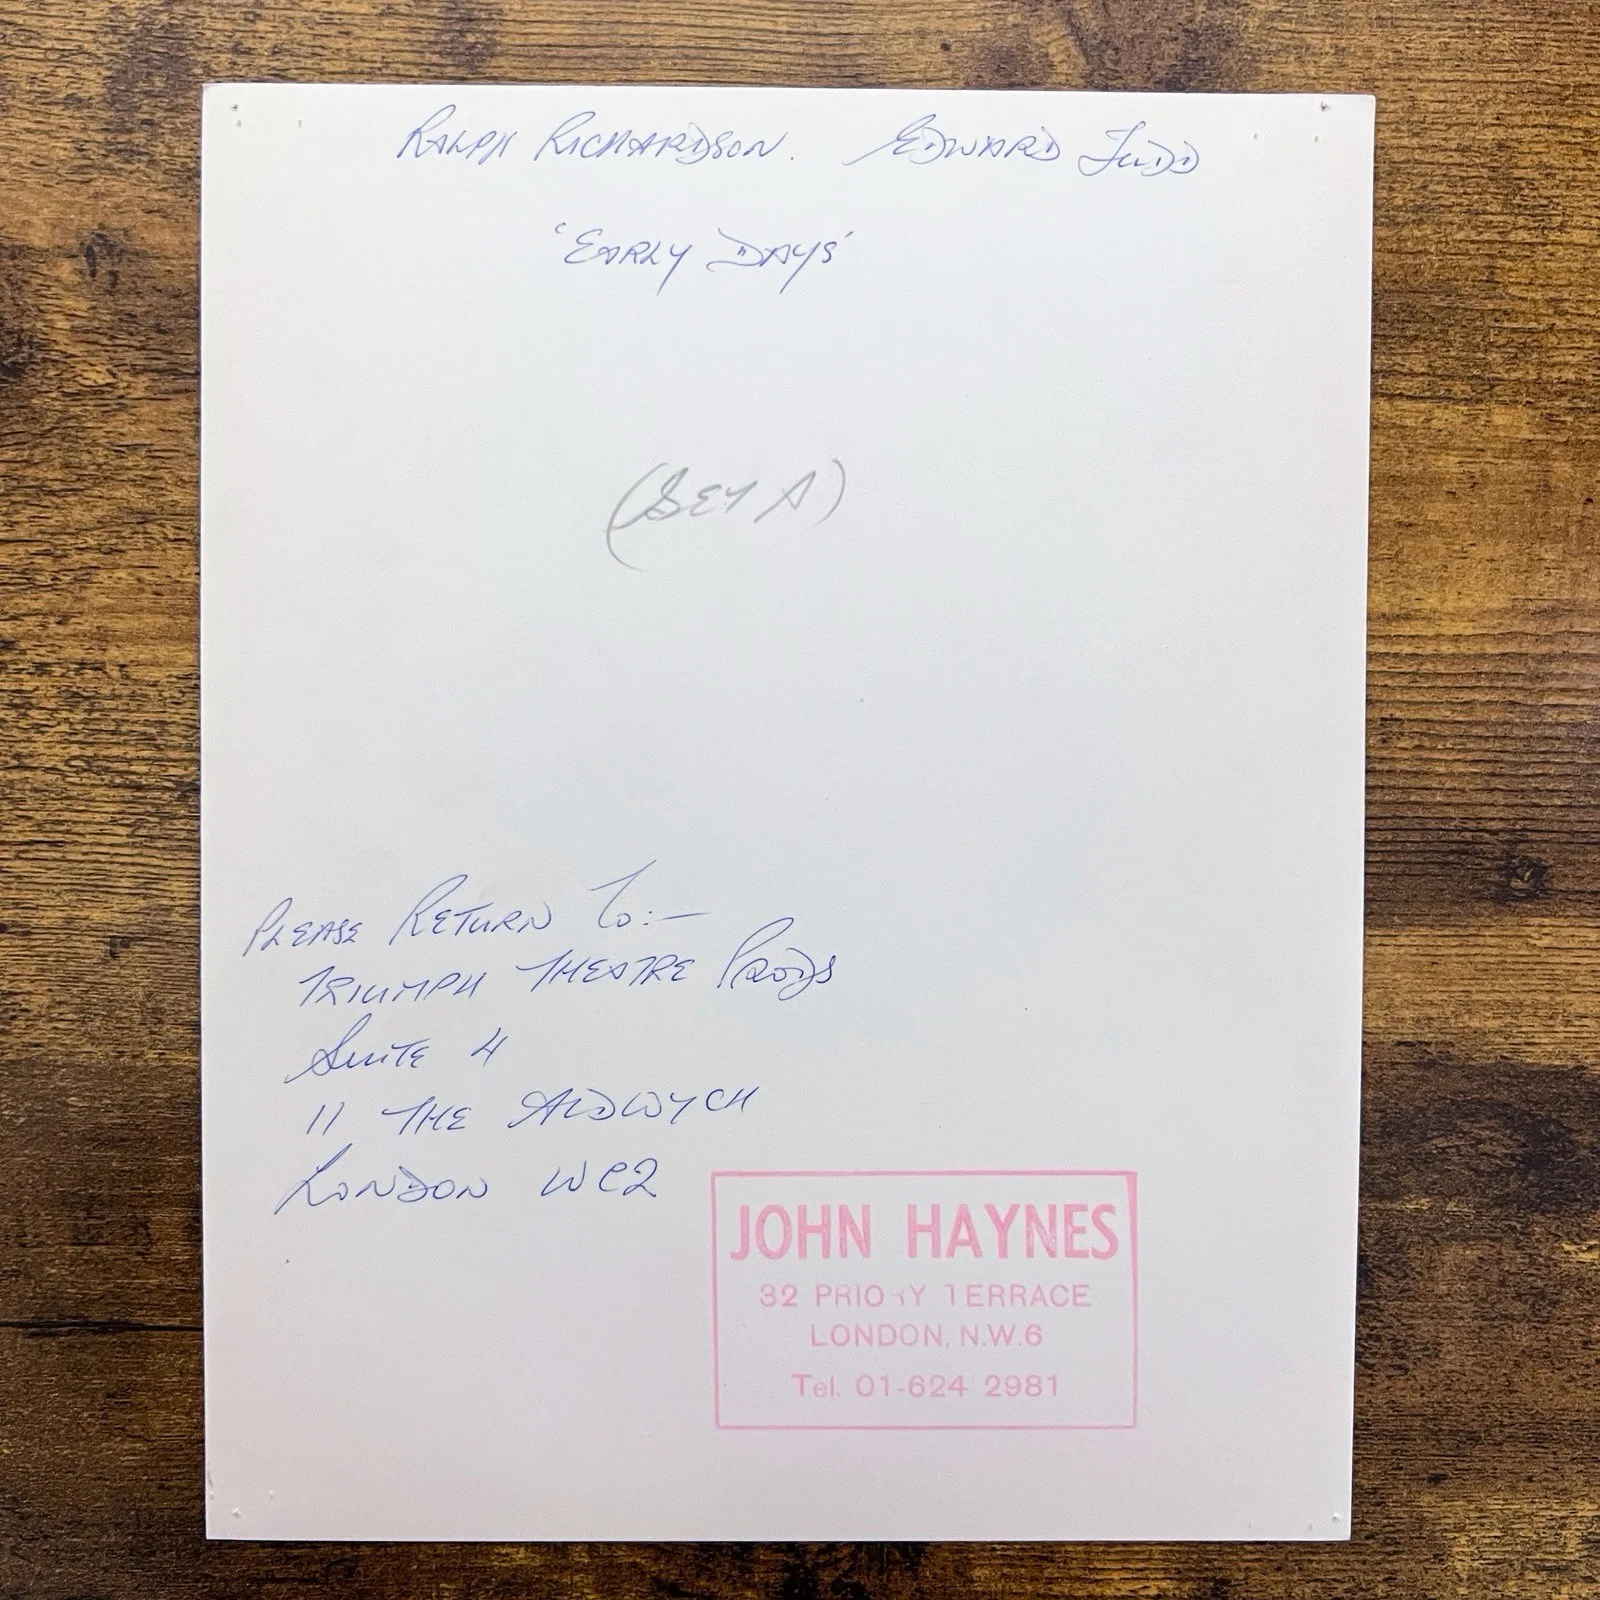 RALPH RICHARDSON. EDWARD JUDD
'EARLY DAYS'
(SET A)
PLEASE RETURN TO:-
TRIUMPH THEATRE PRODS
SUITE 4
11 THE ALDWYCH
LONDON WC2
JOHN HAYNES
32 PRIORY TERRACE
LONDON, N.W.6
Tel. 01-624 2981